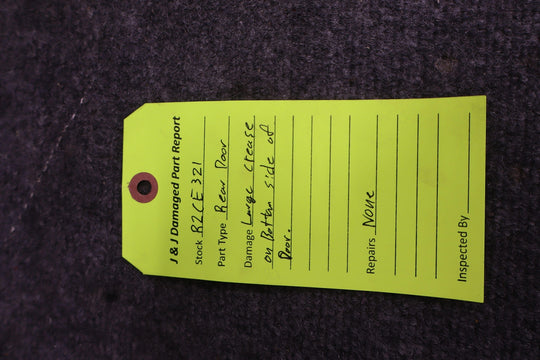 J & J Damaged Part Report
Stock R2CE321
Part Type Rear Door
Damage Large crease
on Bottom side of
Door.
Repairs None
Inspected By